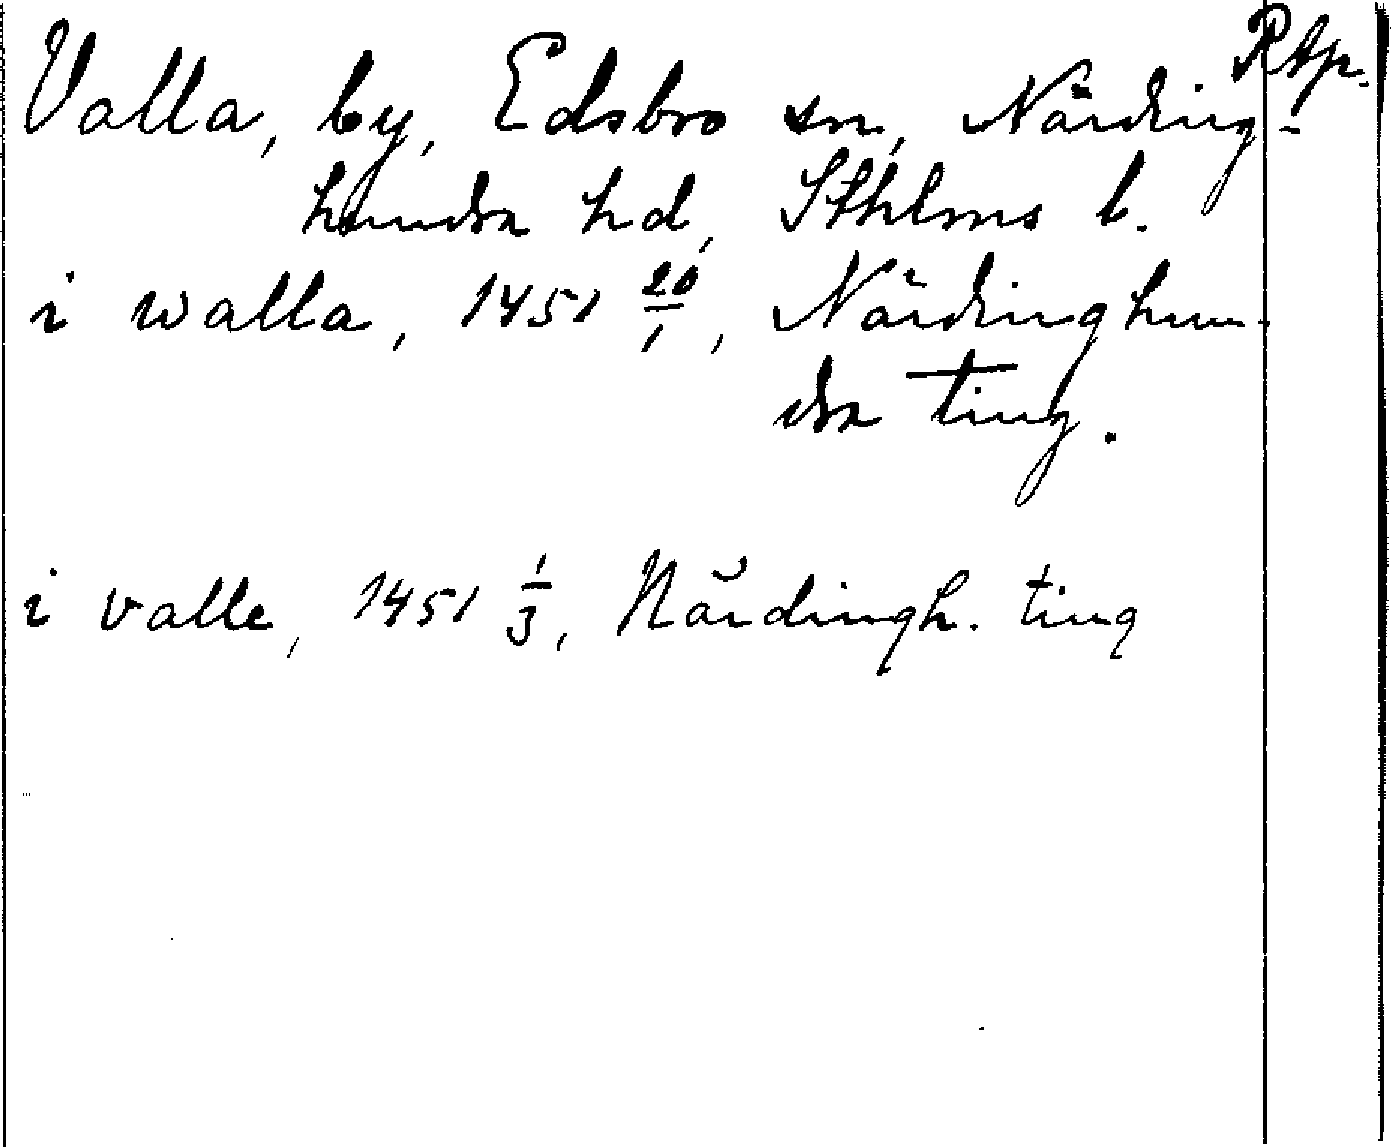 RAp.
Valla, by, Edsbro sn, Närding-
hundra hd, Sthlms l.
i walla, 1451 20/1, Närdinghun-
dra ting.
i valle, 1451 1/3, Närdingh. ting